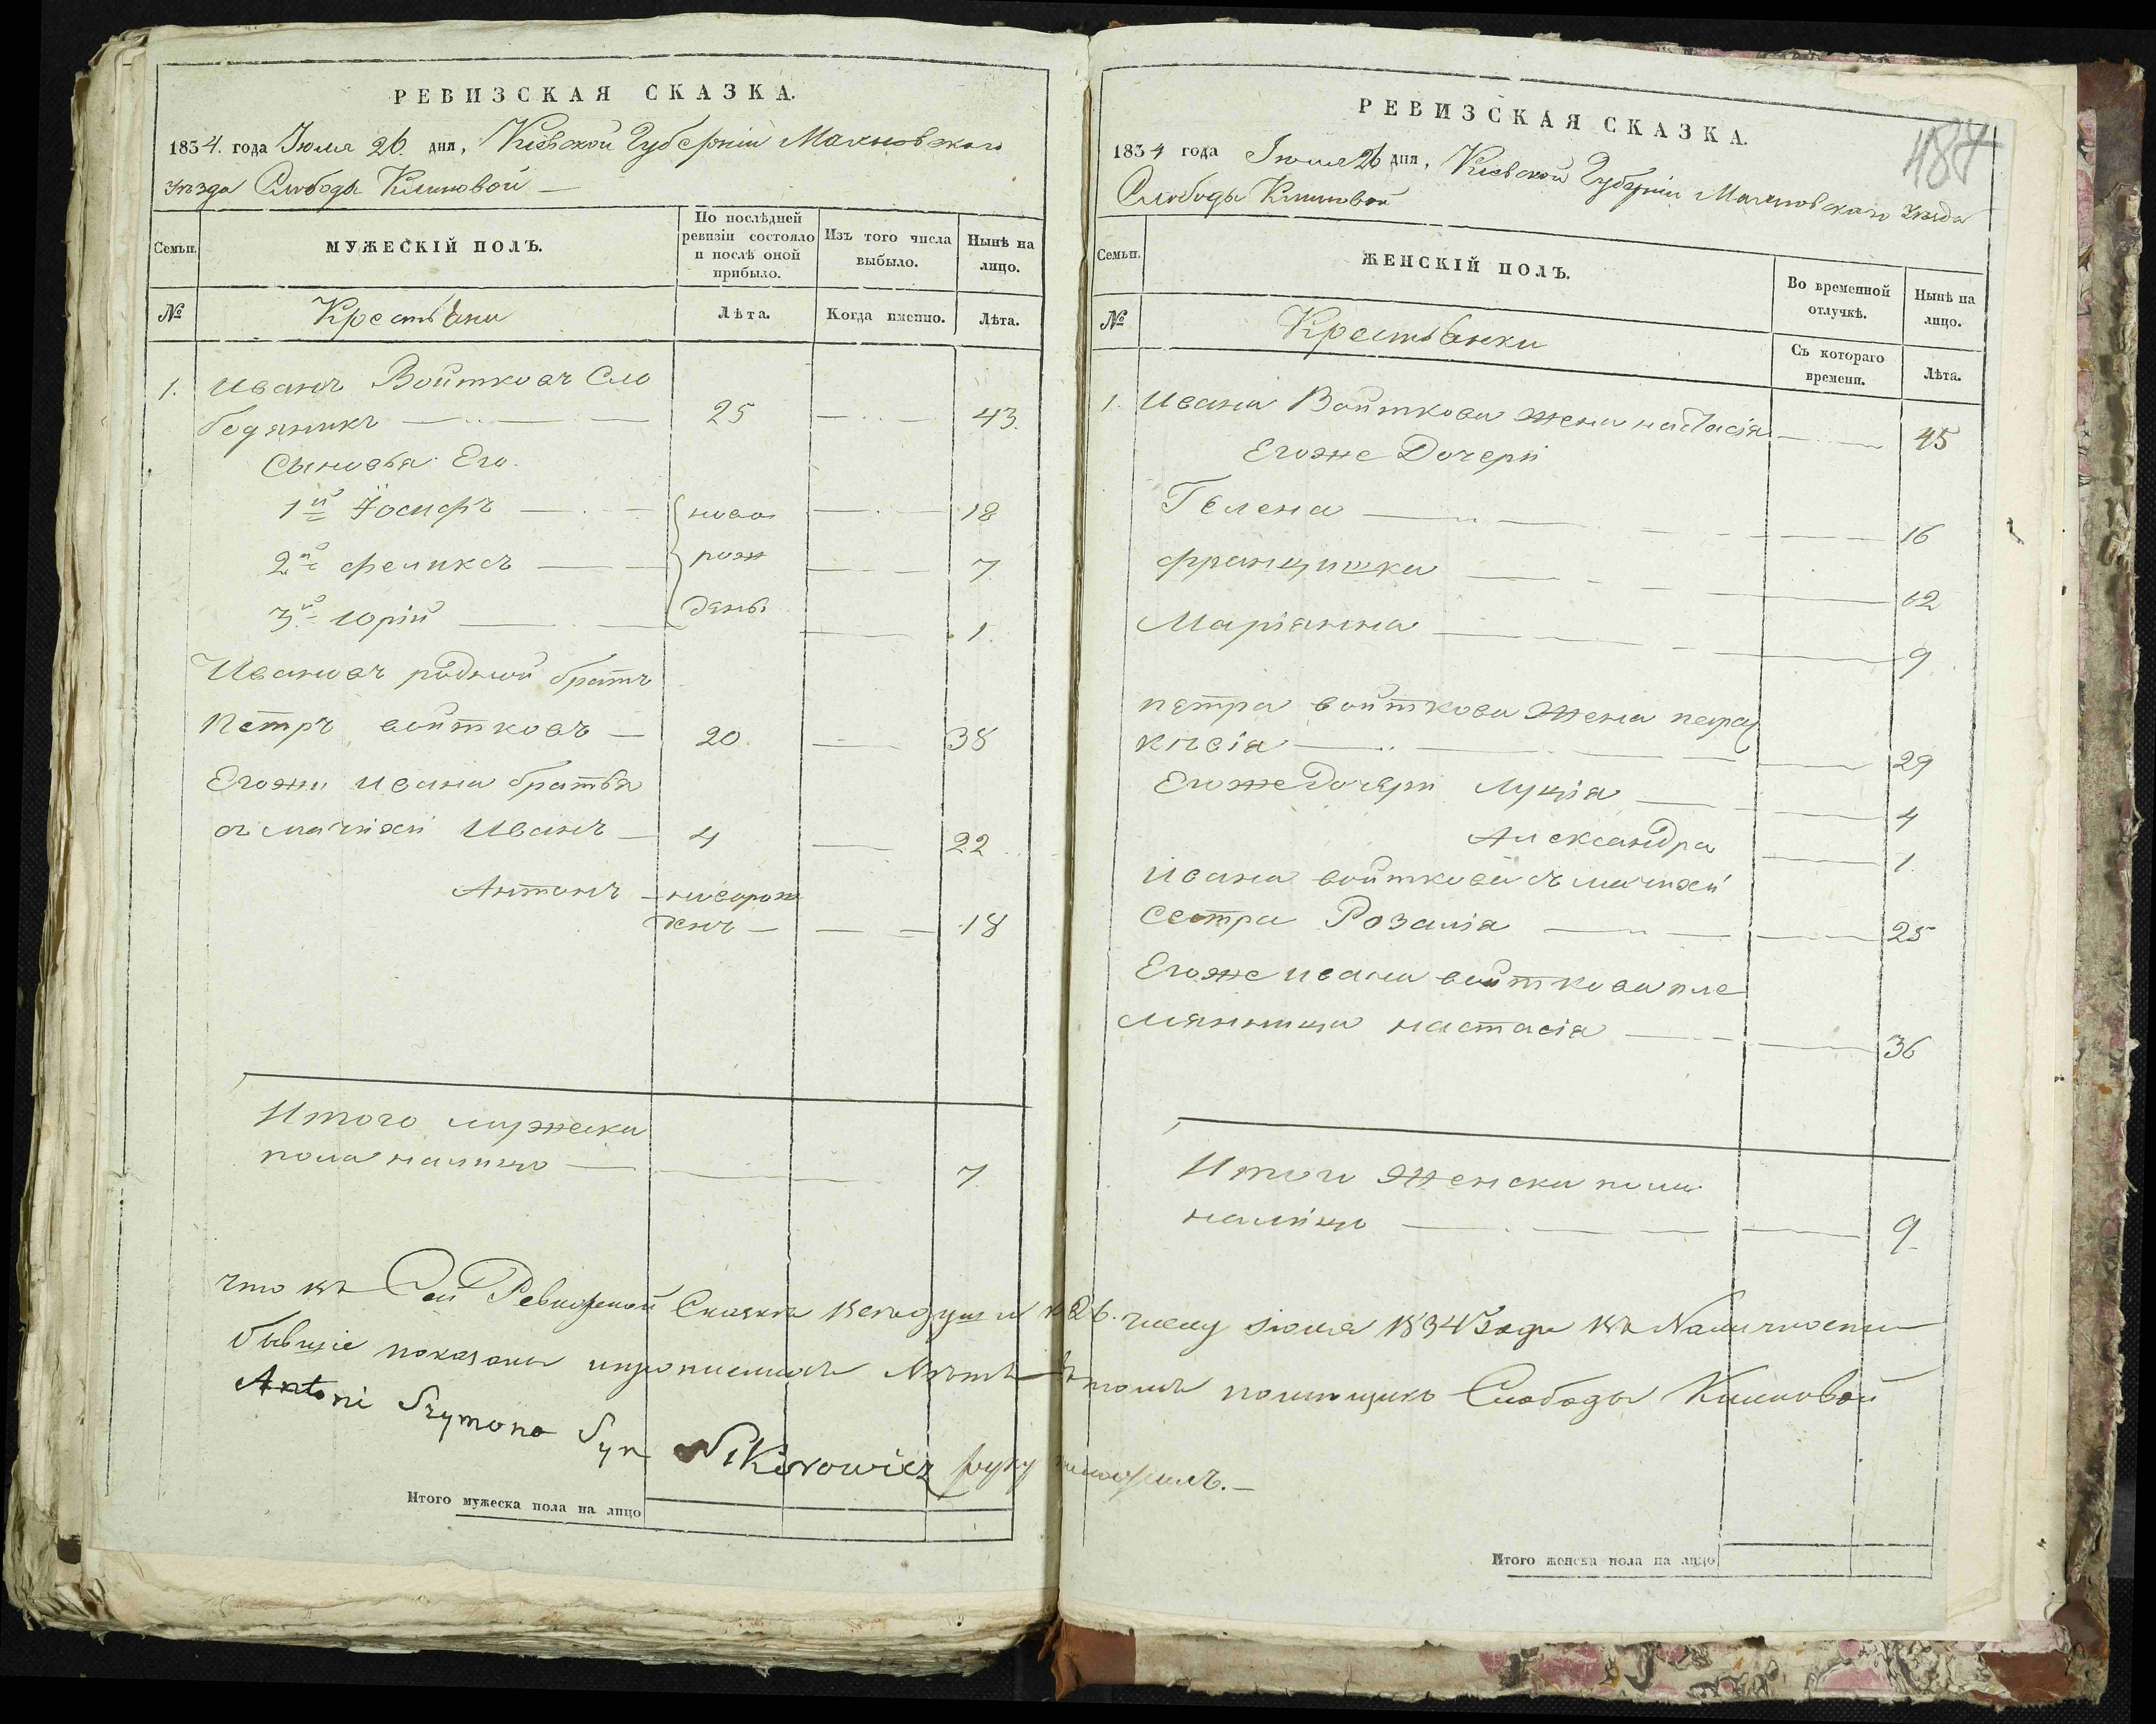 РЕВИЗСКАЯ СКАЗКА.
1834. года Июля 26. дня, Кіевской Губерніи Махновскаго
уезда Слободы Климовой —
Семьи.
МУЖЕСКІЙ ПОЛЪ.
По послѣдней ревизіи состояло и послѣ оной прибыло.
Изъ того числа выбыло.
Нынѣ на лицо.
№
Крестьяни
Лѣта.
Когда именно.
Лѣта.
1. Иванъ Войтковъ Сло
бодяникъ — 25 — 43.
Сыновья Его.
1й Іосифъ — ново — 18
2й феликсъ — рож — 7
3й Юрій — дены — 1.
Ивановъ родной братъ
Петръ войтковъ — 20. — 38
Егожи ивана братья
от мачихи Иванъ — 4 — 22
Антонъ — новорож
денъ — — 18
Итого мужска
пола налицо — 7.
что въ Сей Ревизской Сказкѣ всѣ души к 26. числу июля 1834 Года въ Наличности
бывшіе показаны и прописныхъ Нѣтъ в томъ помещикъ Слободы Климовой
Antoni Szymona Syn Nikorowicz руку приложилъ. —
Итого мужеска пола на лицо
РЕВИЗСКАЯ СКАЗКА.
187
1834 года Июля 26 дня, Кіевской Губерніи Махновскаго уезда
Слободы Климовой
Семьи.
ЖЕНСКІЙ ПОЛЪ.
Во временной отлучкѣ.
Нынѣ на лицо.
№
Крестьянки
Съ котораго времени.
Лѣта.
1. Ивана Войткова жена настасія — 45
Егоже Дочери
Гелена — 16
францишка — 12
Маріянна — 9
петра войткова жена парас
кивія — 29
Егоже Дочери Луція — 4
Александра — 1.
Ивана войткова съ мачихи
сестра Розалія — 25
Егоже ивана войткова пле
мянница настасія — 36
Итого женска пола
налицо — 9.
Итого женска пола на лицо